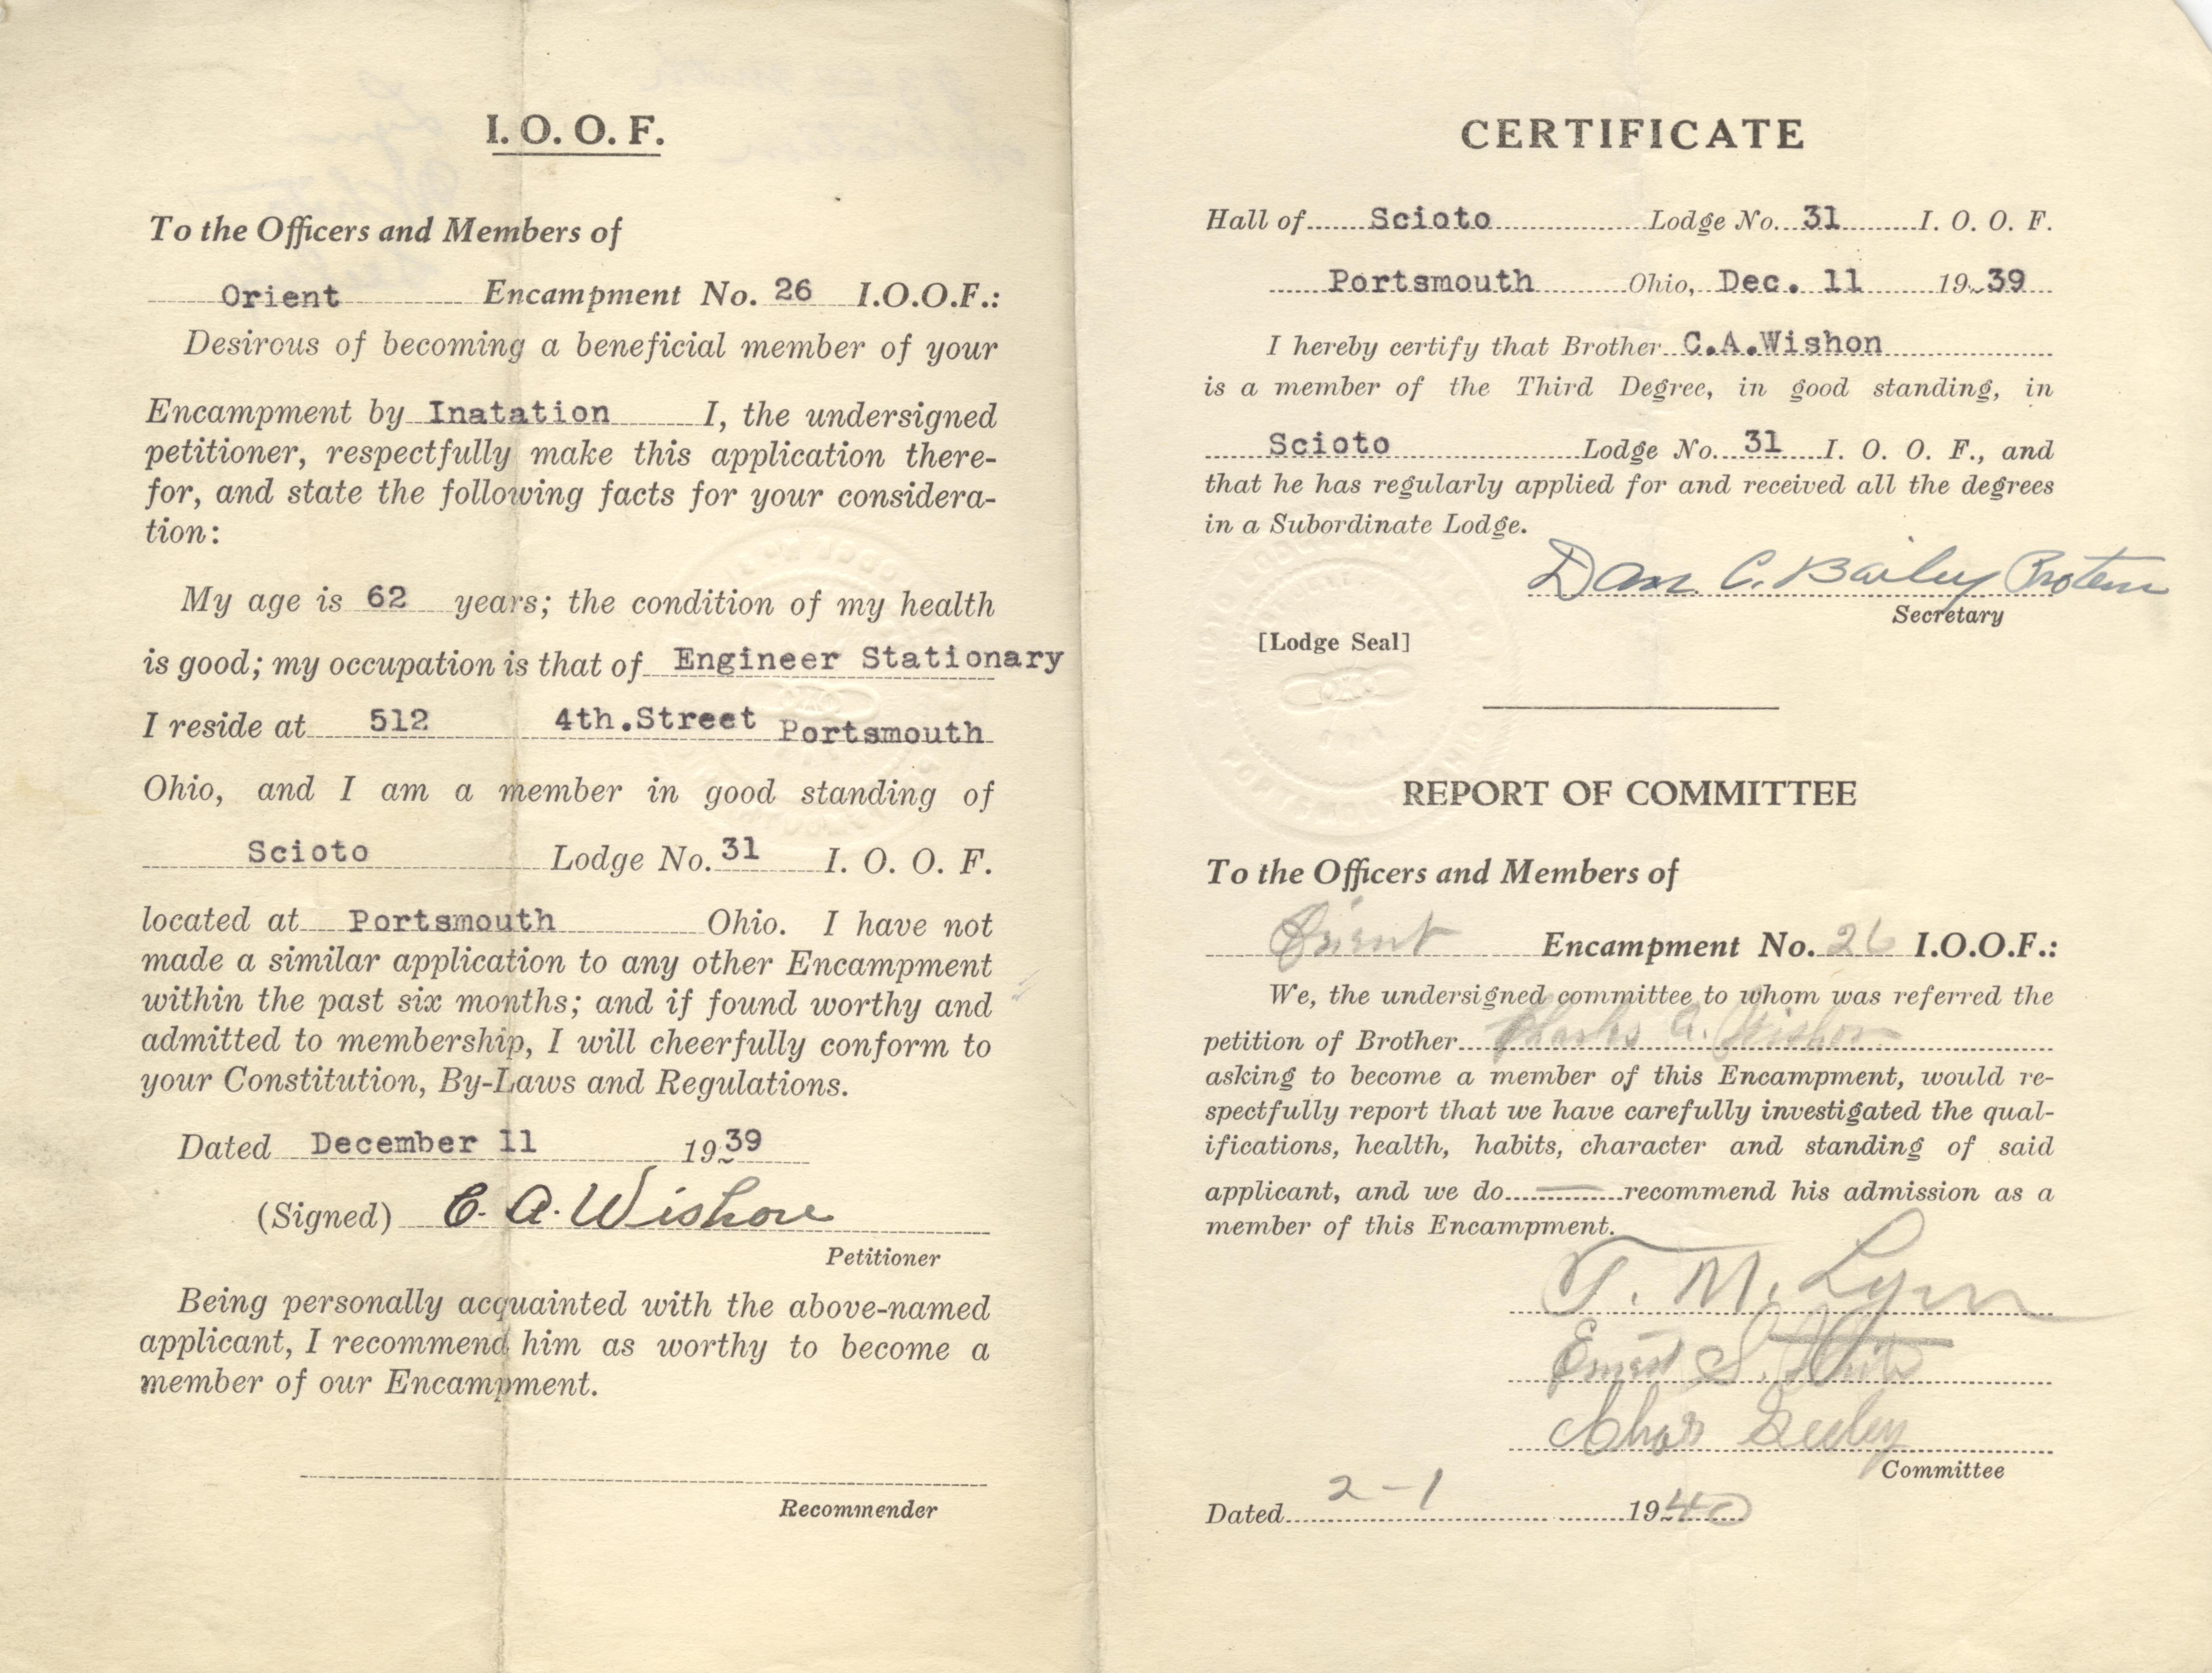 I. O. O. F.
To the Officers and Members of
Orient Encampment No. 26 I.O.O.F.:
Desirous of becoming a beneficial member of your
Encampment by Inatation I, the undersigned
petitioner, respectfully make this application there-
for, and state the following facts for your considera-
tion:
My age is 62 years; the condition of my health
is good; my occupation is that of Engineer Stationary
I reside at 512 4th.Street Portsmouth
Ohio, and I am a member in good standing of
Scioto Lodge No. 31 I. O. O. F.
located at Portsmouth Ohio. I have not
made a similar application to any other Encampment
within the past six months; and if found worthy and
admitted to membership, I will cheerfully conform to
your Constitution, By-Laws and Regulations.
Dated December 11 1939
(Signed) C. A. Wishon
Petitioner
Being personally acquainted with the above-named
applicant, I recommend him as worthy to become a
member of our Encampment.
Recommender
CERTIFICATE
Hall of Scioto Lodge No. 31 I. O. O. F.
Portsmouth Ohio, Dec. 11 1939
I hereby certify that Brother C.A.Wishon
is a member of the Third Degree, in good standing, in
Scioto Lodge No. 31 I. O. O. F., and
that he has regularly applied for and received all the degrees
in a Subordinate Lodge.
Dan. C. Bailey Protem
Secretary
[Lodge Seal]
REPORT OF COMMITTEE
To the Officers and Members of
Orient Encampment No. 26 I.O.O.F.:
We, the undersigned committee to whom was referred the
petition of Brother Charles A. Wishon
asking to become a member of this Encampment, would re-
spectfully report that we have carefully investigated the qual-
ifications, health, habits, character and standing of said
applicant, and we do recommend his admission as a
member of this Encampment.
T. M. Lynn
Ernest S. White
Chas Seeley
Committee
Dated 2-1 1940